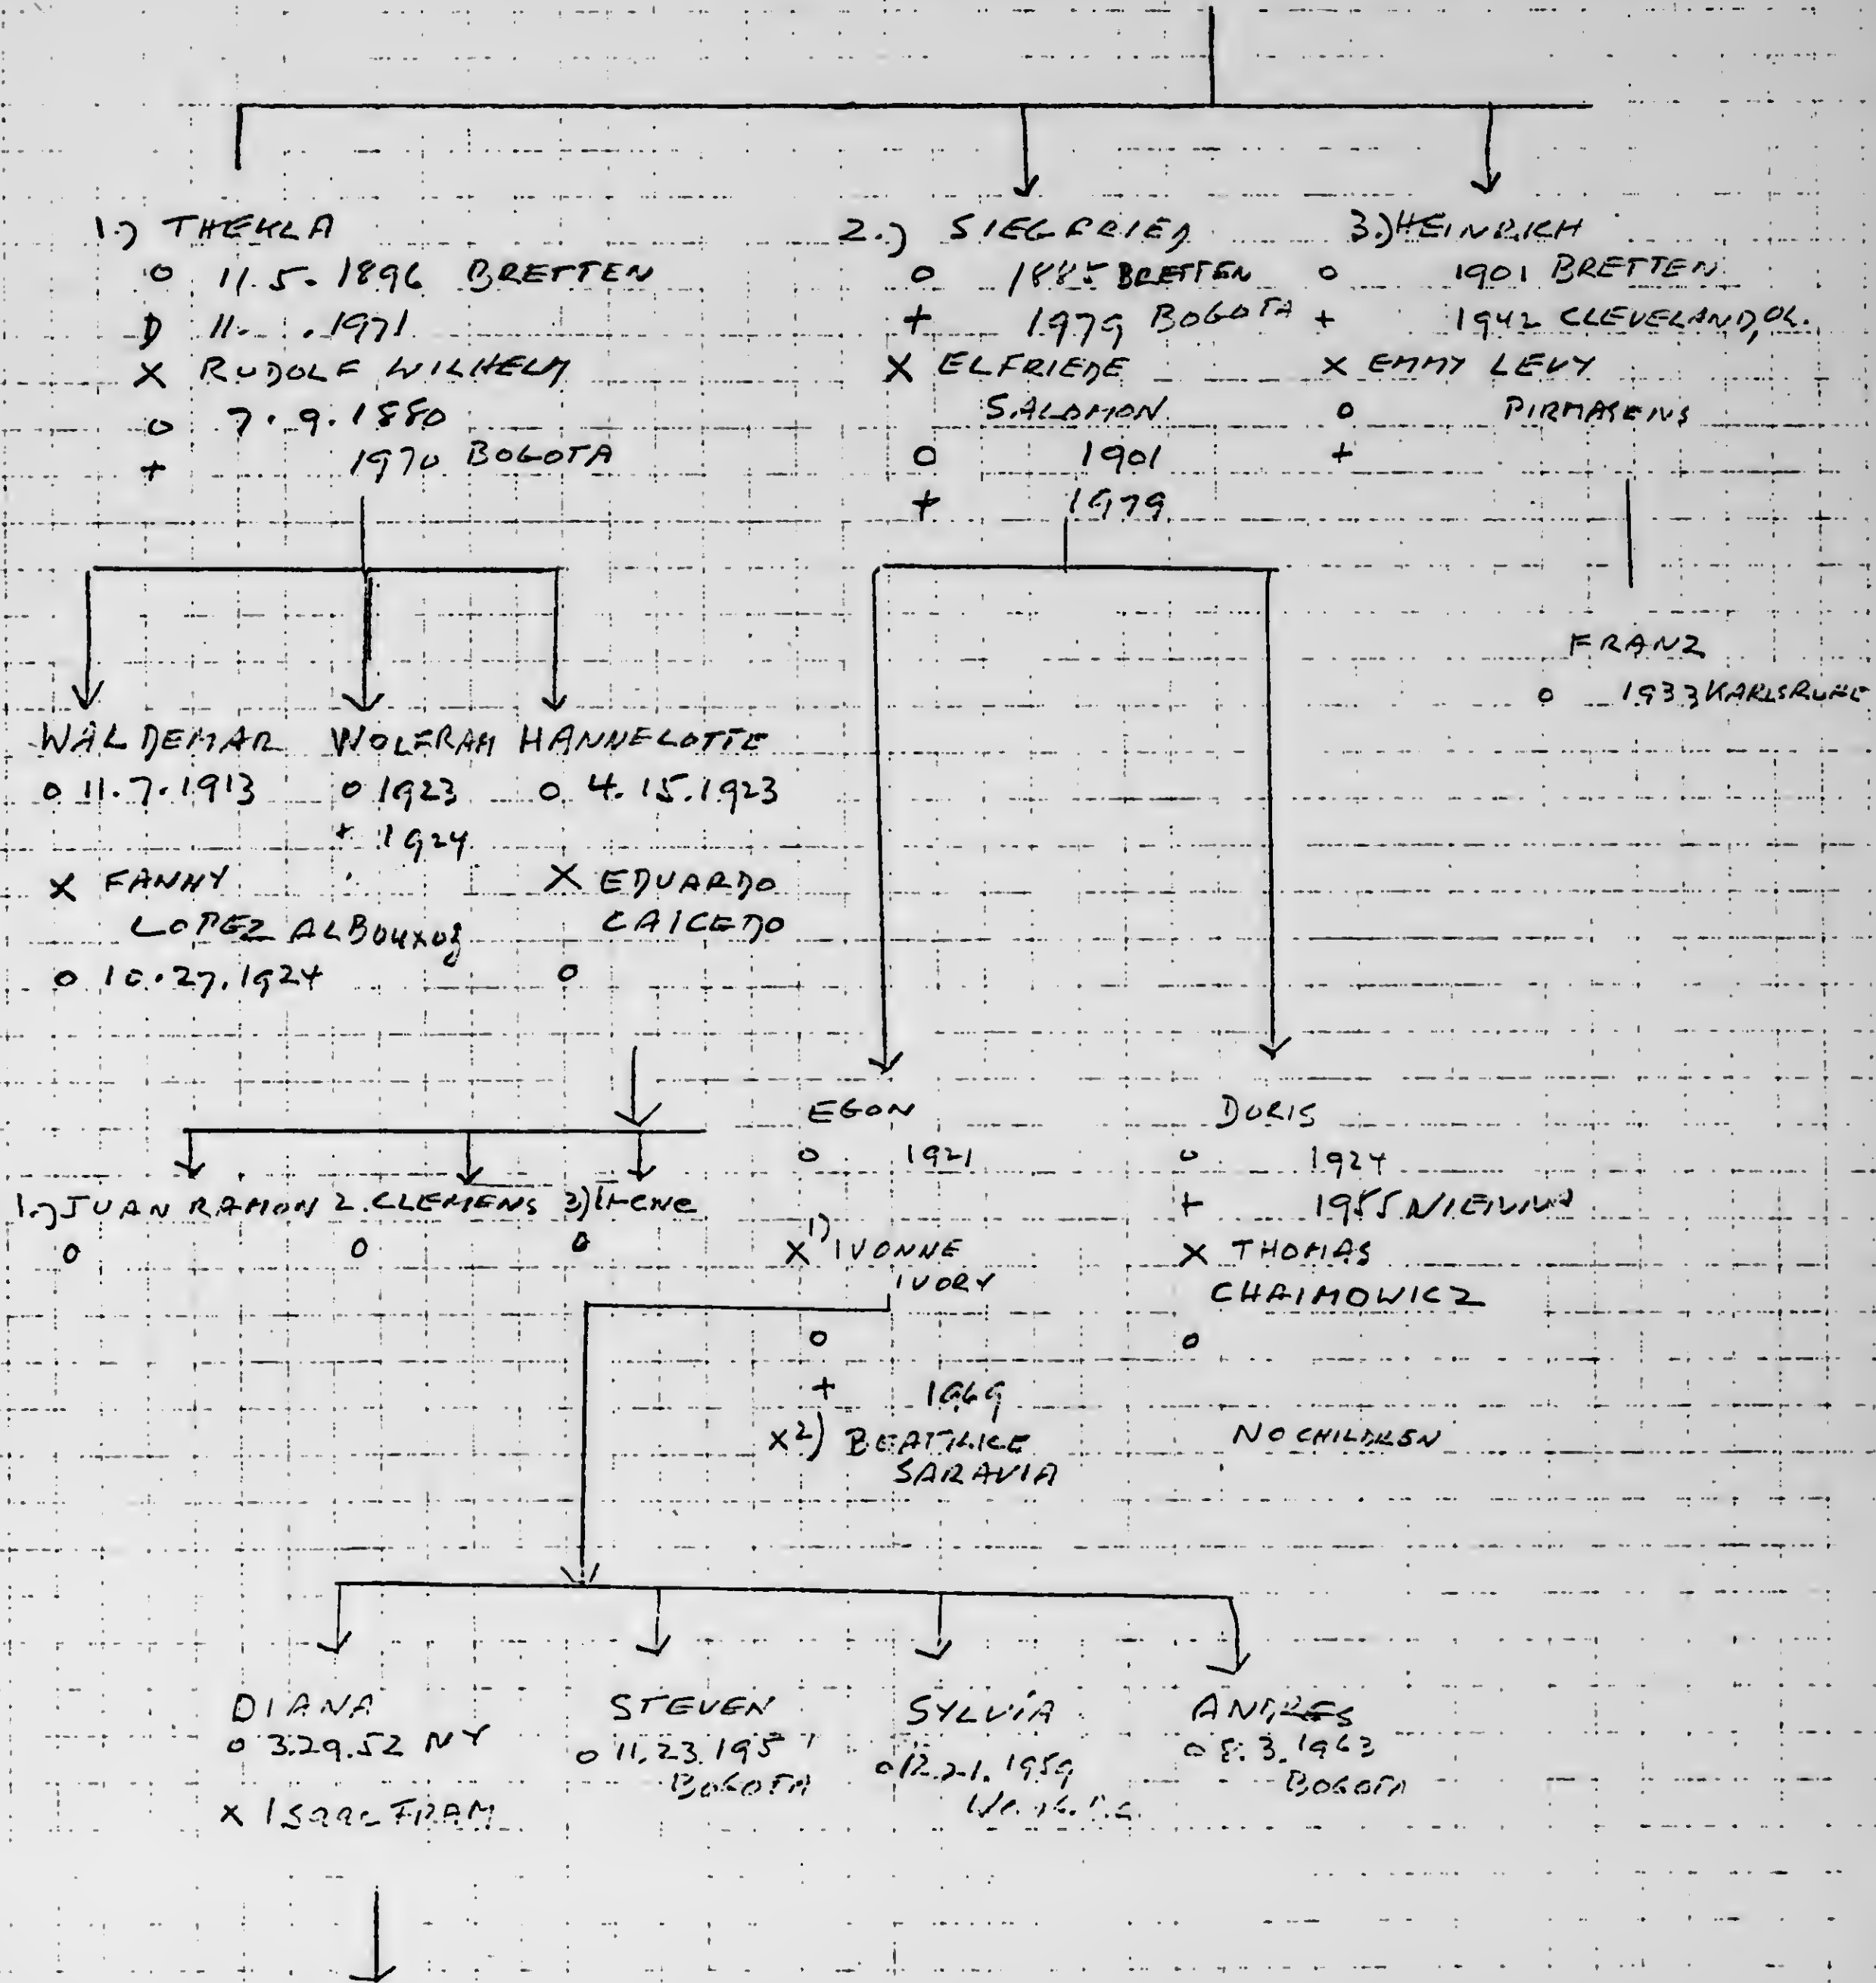 1.) THEKLA
o 11.5.1896 BRETTEN
D 11. .1971
X RUDOLF WILHELM
o 7.9.1880
+ 1970 BOGOTA
2.) SIEGFRIED
o 1885 BRETTEN
+ 1979 BOGOTA
X ELFRIEDE
SALOMON
o 1901
+ 1979
3.) HEINRICH
o 1901 BRETTEN
+ 1942 CLEVELAND, OL.
X EMMY LEVY
o PIRMASENS
+
WALDEMAR
o 11.7.1913
X FANNY
LOPEZ
o 10.27.1924
WOLFRAM
o 1923
+ 1924
HANNELOTTE
o 4.15.1923
X EDUARDO
CAICEDO
o
FRANZ
o 1933 KARLSRUHE
1.) JUAN RAMON 2. CLEMENS 3) IRENE
o o o
EGON
o 1921
X 1) IVONNE
IVORY
o
+ 1969
X 2) BEATRICE
SARAVIA
DORIS
o 1924
+ 1955
X THOMAS
CHAIMOWICZ
o
NO CHILDREN
DIANA
o 3.29.52 NY
X ISAAC FRAM
STEVEN
o 11.23.195
BOGOTA
SYLVIA
o 12.21.1959
ANDRES
o 8.3.1963
BOGOTA